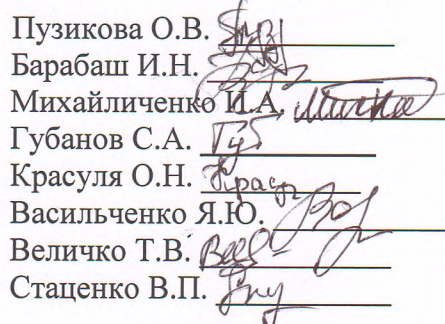 Пузикова О.В.
Барабаш И.Н.
Михайличенко И.А.
Губанов С.А.
Красуля О.Н.
Васильченко Я.Ю.
Величко Т.В.
Стаценко В.П.